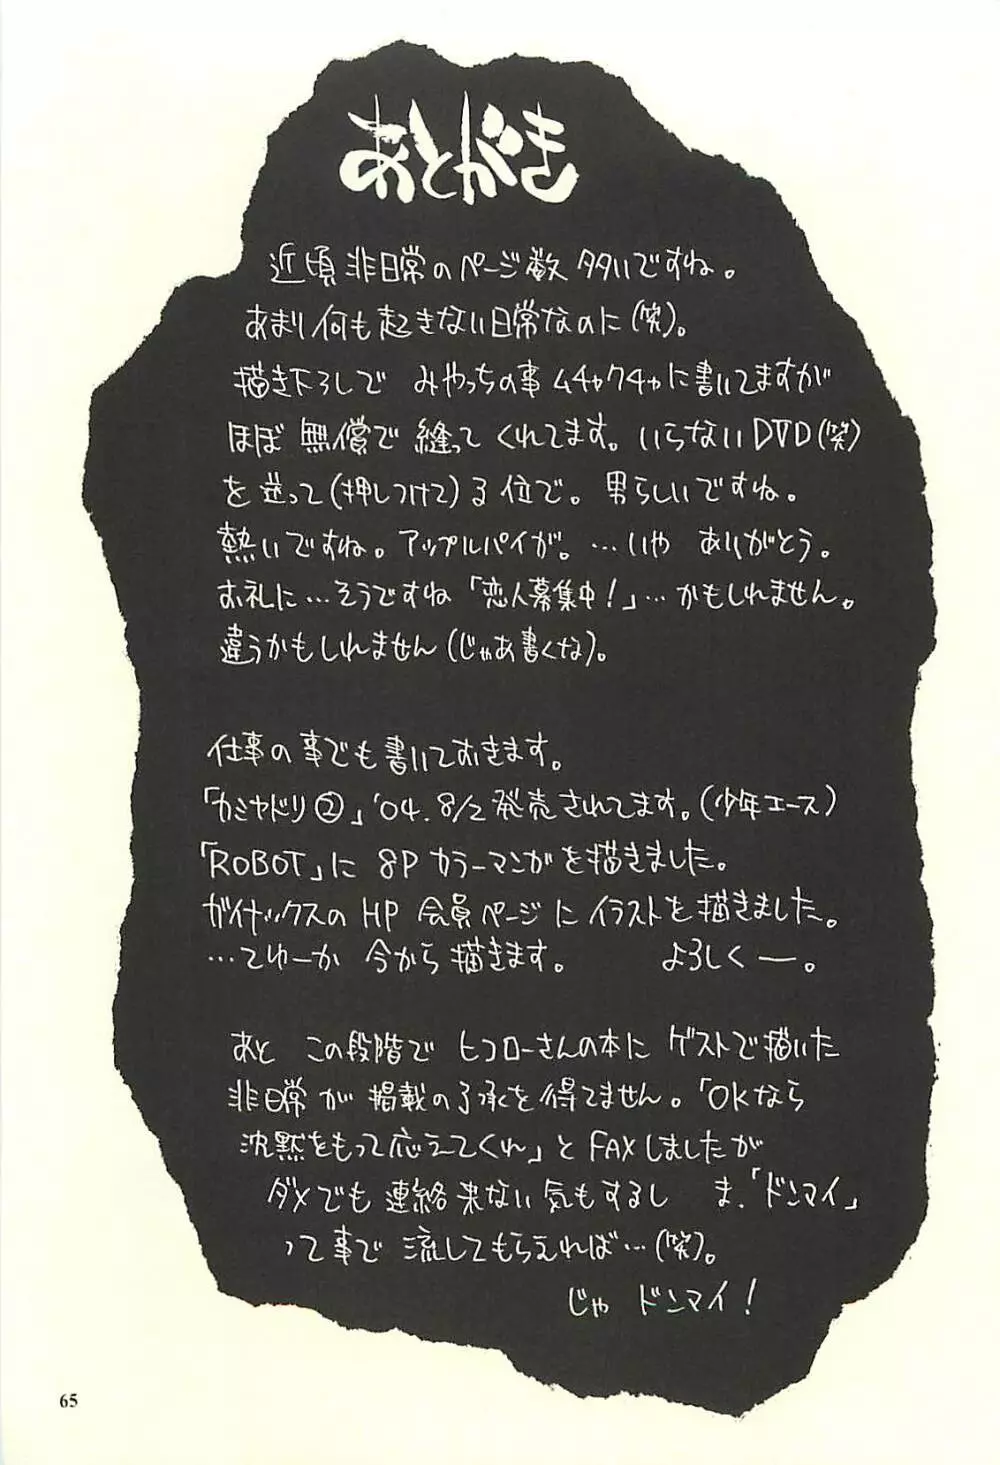 あとがき
近頃 非日常のページ数 多いですね。
あまり何も起きない日常なのに(笑)。
描き下ろしで みやっちの事 ムチャクチャに書いてますが
ほぼ 無償で 縫って くれてます。いらないDVD(笑)
を送って(押しつけて)る位で。男らしいですね。
熱いですね。アップルパイが。…いや ありがとう。
お礼に…そうですね「恋人募集中!」…かもしれません。
違うかもしれません(じゃあ書くな)。
仕事の事でも書いておきます。
「カミヤドリ②」'04.8/2発売されてます。(少年エース)
「ROBOT」に 8P カラーマンガを描きました。
ガイナックスのHP 会員ページに イラストを描きました。
…てゆーか 今から描きます。 よろしくー。
あと この段階で ヒコローさんの本に ゲストで描いた
非日常が 掲載の了承を得てません。「OKなら
沈黙をもって応えてくれ」とFAXしましたが
ダメでも 連絡来ない気もするし ま、「ドンマイ」
って事で 流してもらえれば…(笑)。
じゃ ドンマイ!
65